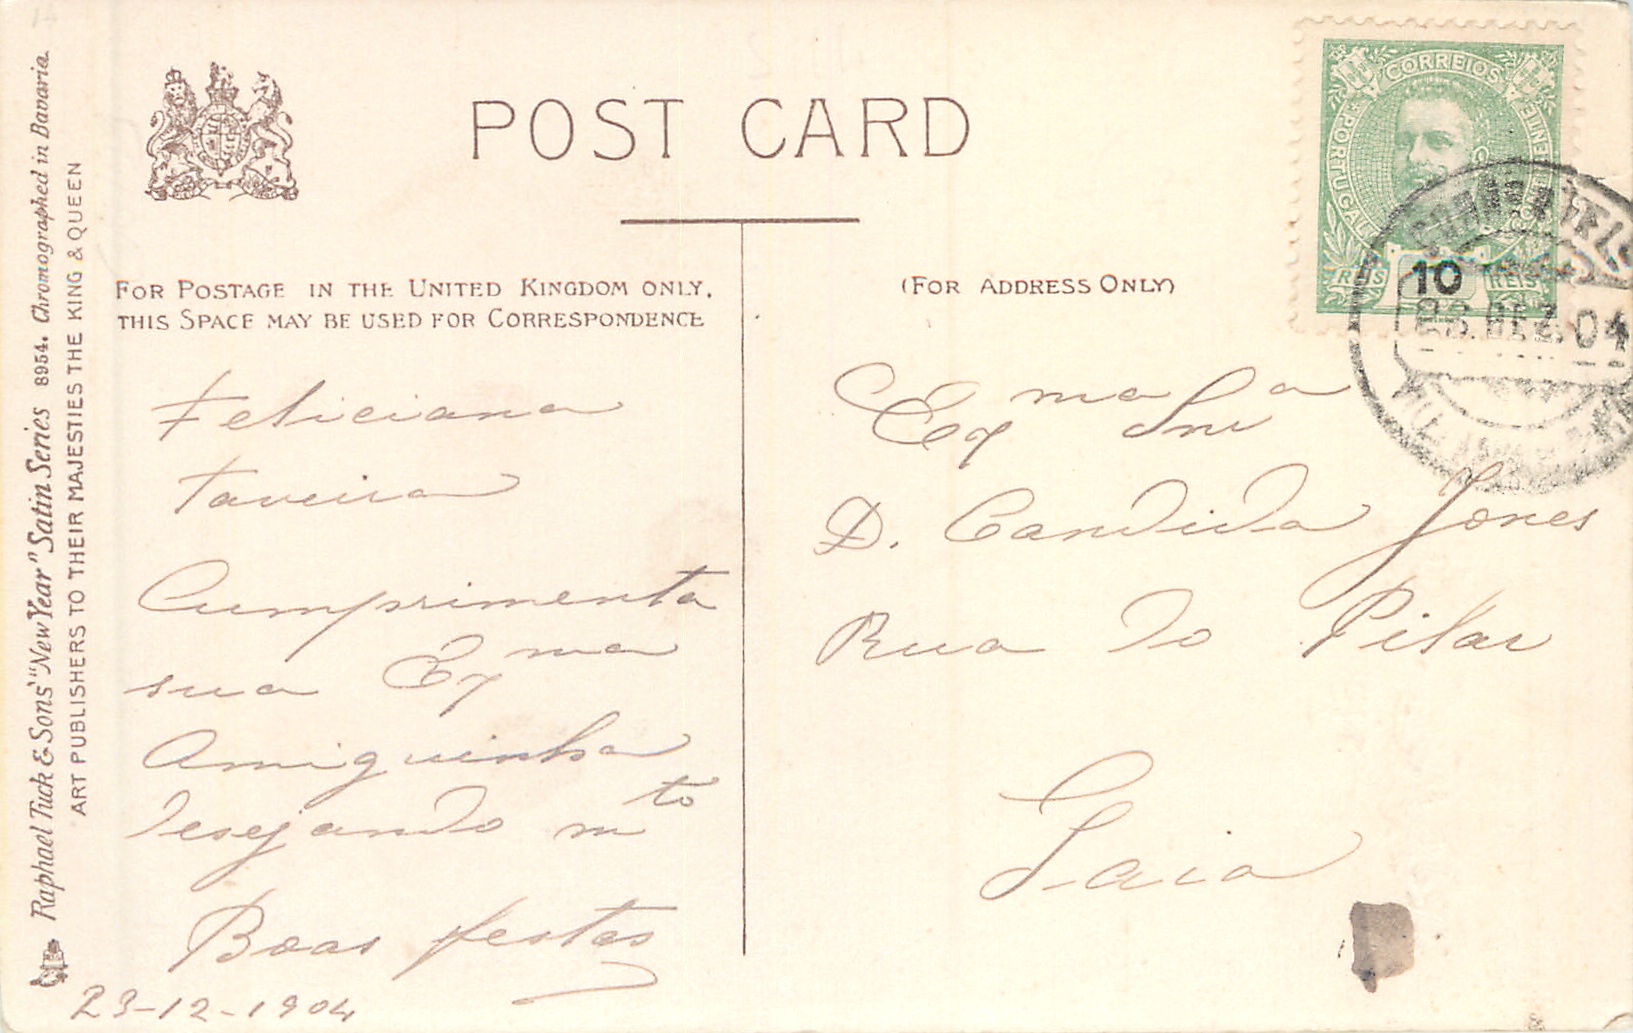 POST CARD
FOR POSTAGE IN THE UNITED KINGDOM ONLY,
THIS SPACE MAY BE USED FOR CORRESPONDENCE
(FOR ADDRESS ONLY)
Raphael Tuck & Sons' "New Year" Satin Series 8954. Chromographed in Bavaria.
ART PUBLISHERS TO THEIR MAJESTIES THE KING & QUEEN
Feliciana
Taveira
Cumprimenta
sua Exma
Amiguinha
desejando mto
Boas festas
23-12-1904
CORREIOS
PORTUGAL
10
REIS REIS
DEZ 04
Exma Snra
D. Candida Jones
Rua do Pilar
Gaia